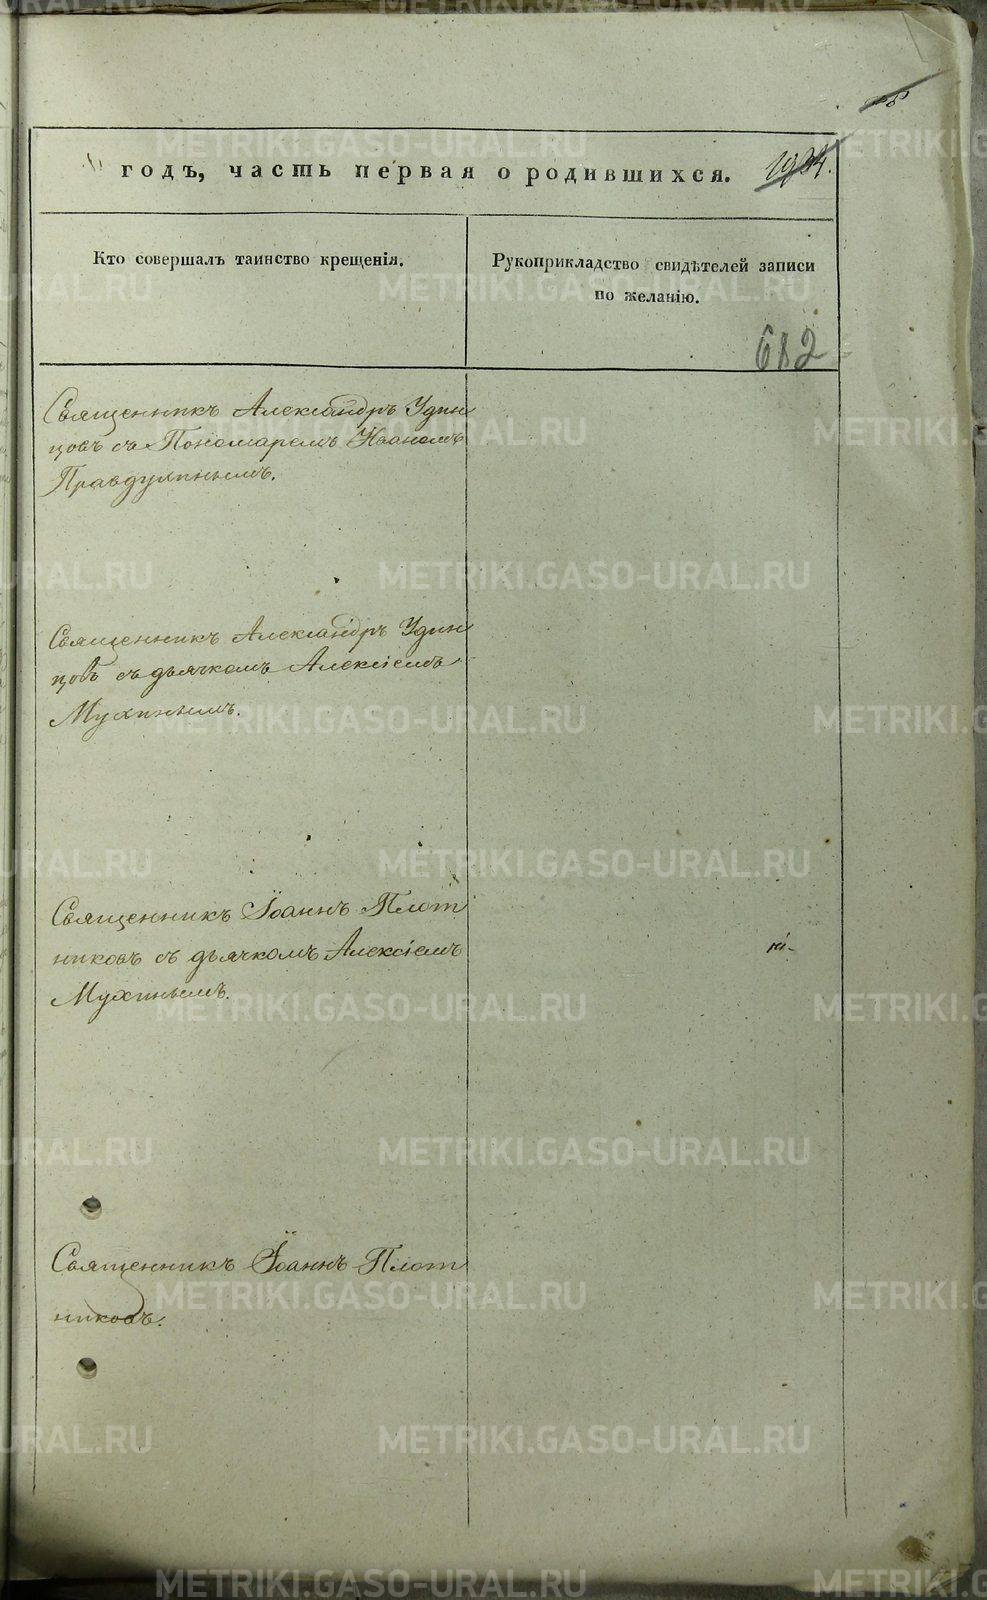 годъ, часть первая о родившихся.
Кто совершалъ таинство крещенія.
Рукоприкладство свидѣтелей записи
по желанію.
682
Священникъ Александръ Удин
цовъ съ Пономаремъ Иваномъ
Правдухинымъ.
Священникъ Александръ Удин
цовъ съ дьячкомъ Алексіемъ
Мухинымъ.
Священникъ Іоаннъ Плот
никовъ съ дьячкомъ Алексіемъ
Мухинымъ.
Священникъ Іоаннъ Плот
никовъ.
METRIKI.GASO-URAL.RU